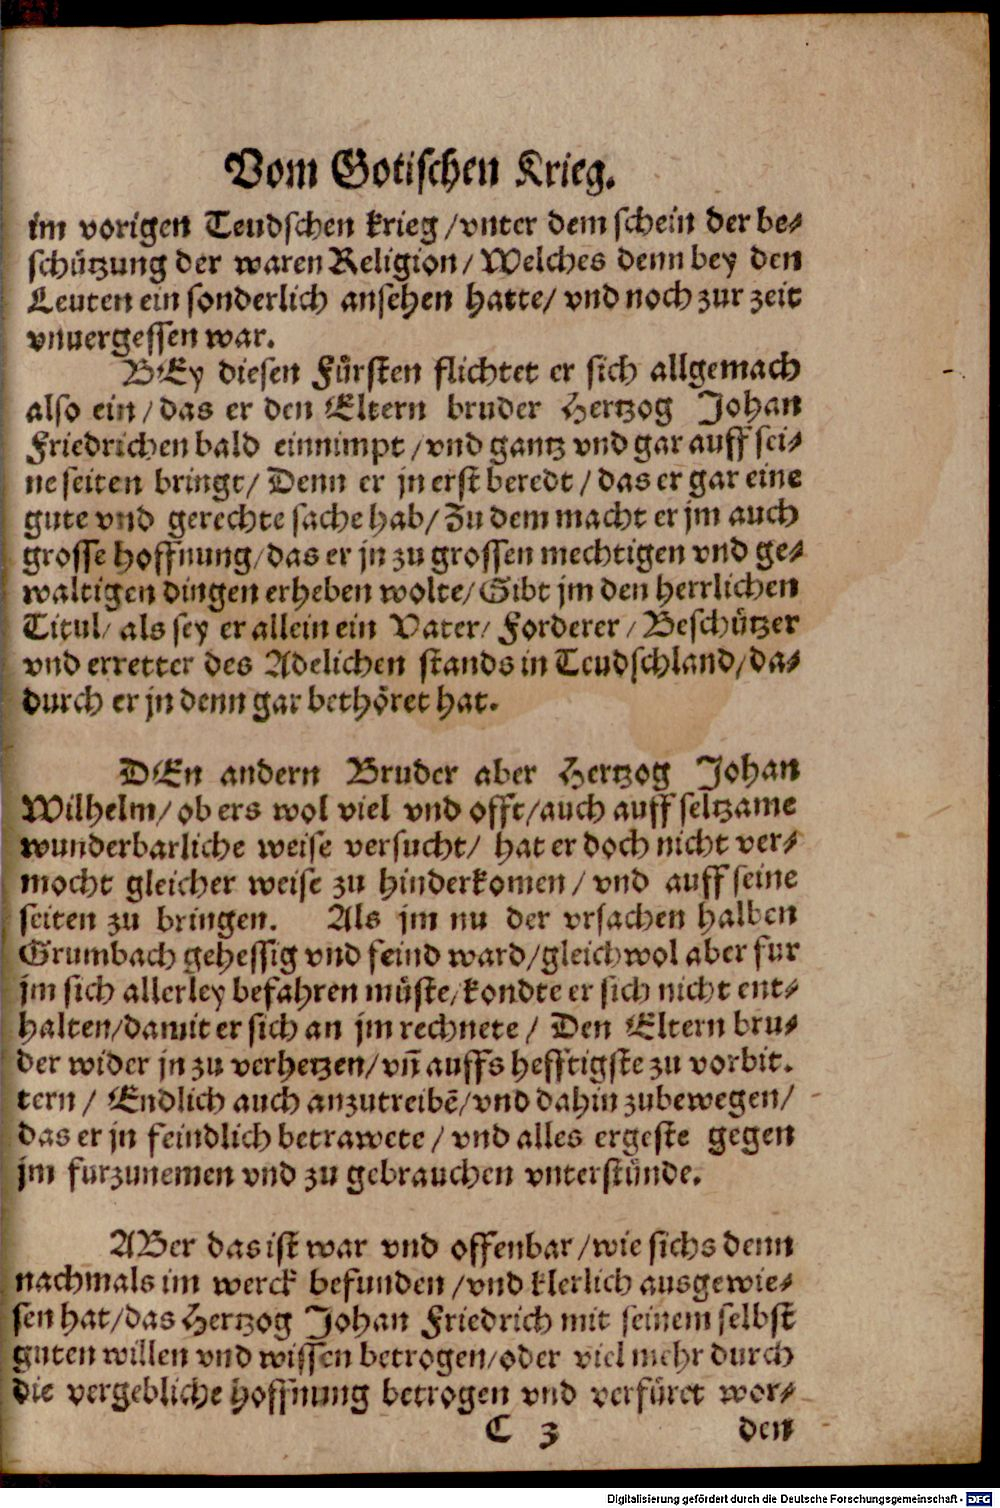 Vom Gotischen Krieg.
im vorigen Teudschen krieg / vnter dem schein der be⸗
schützung der waren Religion / Welches denn bey den
Leuten ein sonderlich ansehen hatte / vnd noch zur zeit
vnuergessen war.
BEy diesen Fürsten flichtet er sich allgemach
also ein / das er den Eltern bruder Hertzog Johan
Friedrichen bald einnimpt / vnd gantz vnd gar auff sei⸗
ne seiten bringt / Denn er jn erst beredt / das er gar eine
gute vnd gerechte sache hab / Zu dem macht er jm auch
grosse hoffnung / das er jn zu grossen mechtigen vnd ge⸗
waltigen dingen erheben wolte / Gibt jm den herrlichen
Titul / als sey er allein ein Vater / Forderer / Beschützer
vnd erretter des Adelichen stands in Teudschland / da⸗
durch er jn denn gar bethöret hat.
DEn andern Bruder aber Hertzog Johan
Wilhelm / ob ers wol viel vnd offt / auch auff seltzame
wunderbarliche weise versucht / hat er doch nicht ver⸗
mocht gleicher weise zu hinderkomen / vnd auff seine
seiten zu bringen. Als jm nu der vrsachen halben
Grumbach gehessig vnd feind ward / gleichwol aber fur
jm sich allerley befahren müste / kondte er sich nicht ent⸗
halten / damit er sich an jm rechnete / Den Eltern bru⸗
der wider jn zu verhetzen / vñ auffs hefftigste zu vorbit.
tern / Endlich auch anzutreibē / vnd dahin zubewegen /
das er jn feindlich betrawete / vnd alles ergeste gegen
jm furzunemen vnd zu gebrauchen vnterstünde.
ABer das ist war vnd offenbar / wie sichs denn
nachmals im werck befunden / vnd klerlich ausgewie⸗
sen hat / das Hertzog Johan Friedrich mit seinem selbst
guten willen vnd wissen betrogen / oder viel mehr durch
die vergebliche hoffnung betrogen vnd verfüret wor⸗
C 3 den
Digitalisierung gefördert durch die Deutsche Forschungsgemeinschaft - DFG